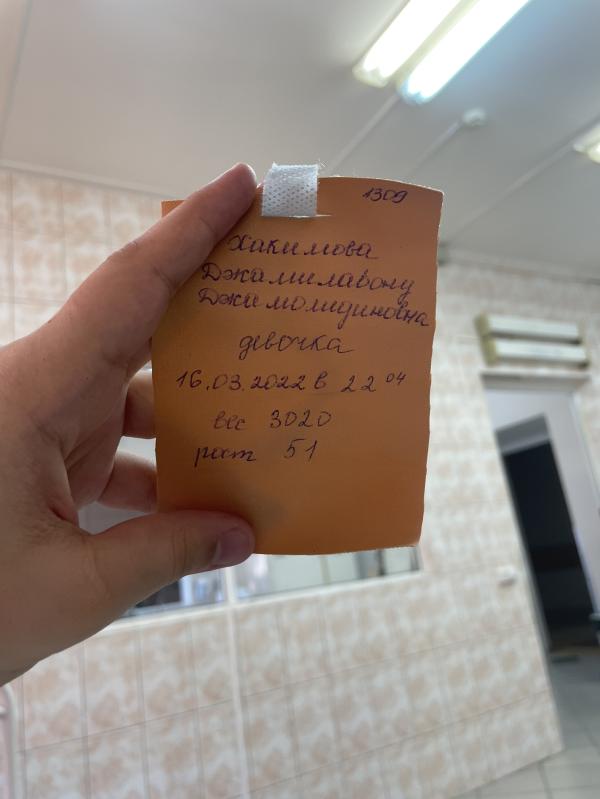 1309
Хакимова
Джамилавону
Джамолидиновна
девочка
16.03.2022 в 22 04
вес 3020
рост 51